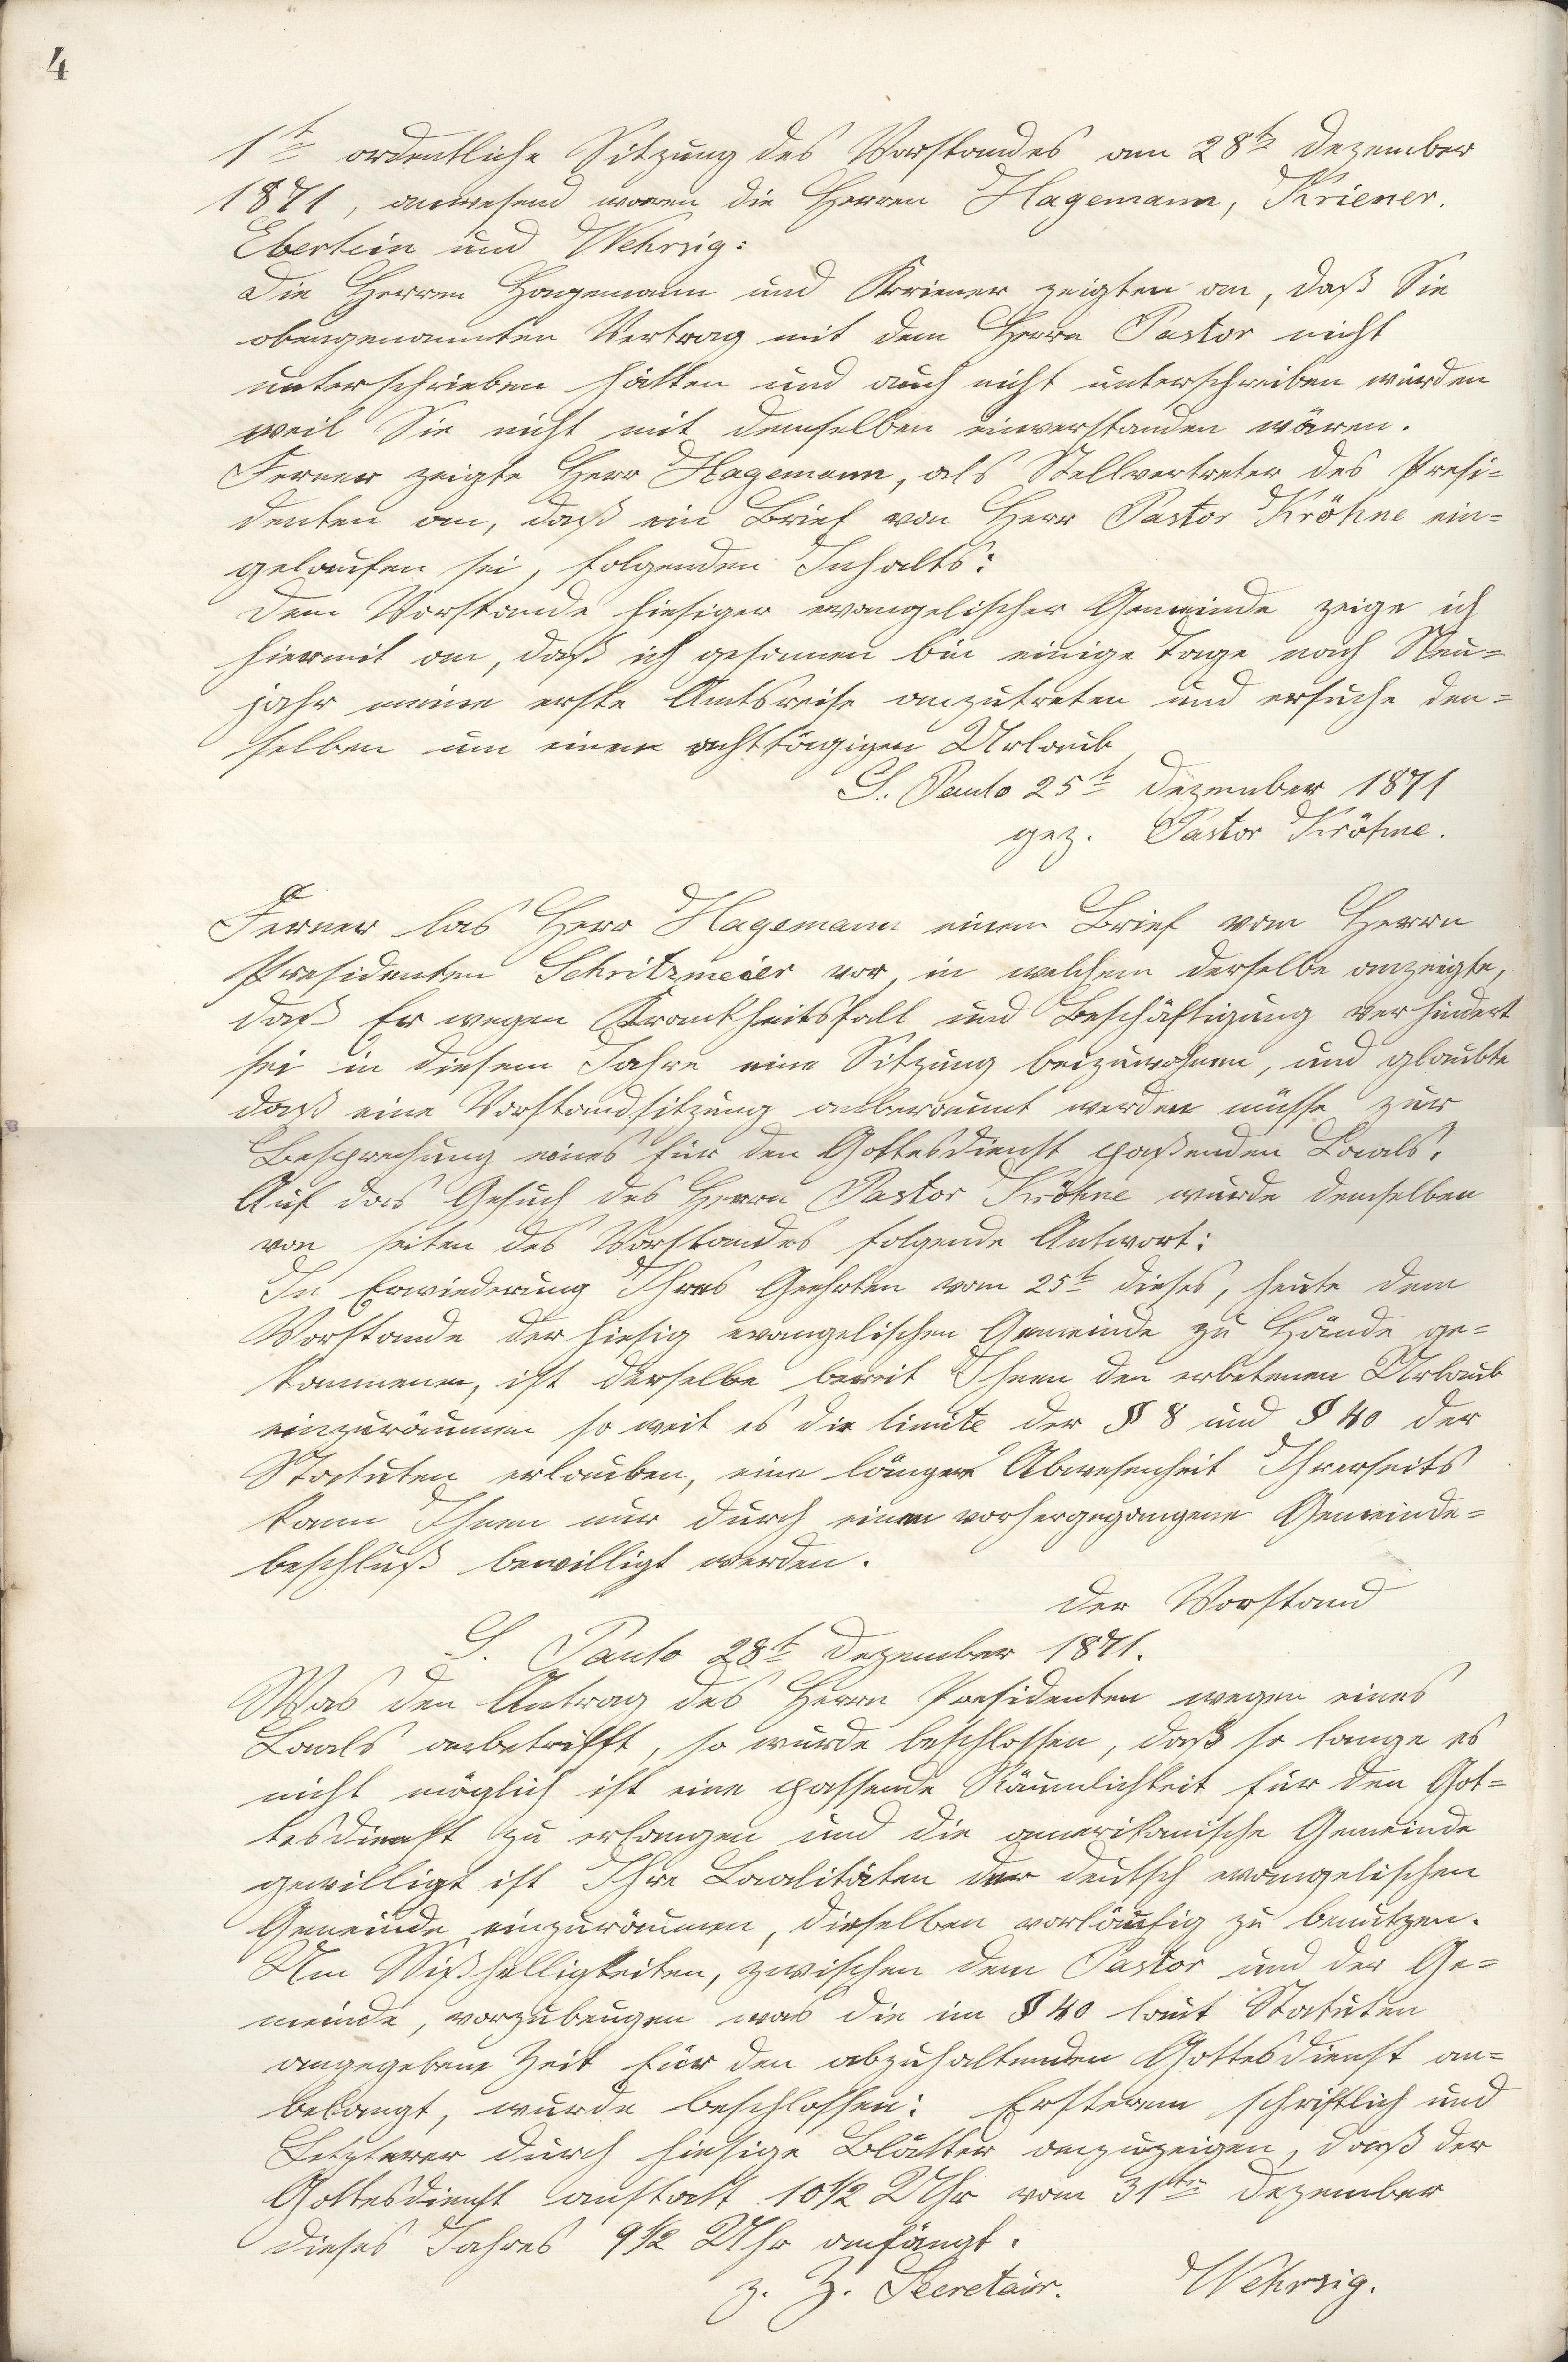 4
1te ordentliche Sitzung des Vorstandes am 28tn Dezember
1871, anwesend waren die Herren Hagemann, Kriener.
Eberlein und Wehrsig:
Die Herren Hagemann und Kriener zeigten an, daß Sie
obengenannten Vertrag mit dem Herrn Pastor nicht
unterschrieben hätten und auch nicht unterschreiben würden
weil Sie nicht mit demselben einverstanden wären.
Ferner zeigte Herr Hagemann, als Stellvertreter des Presi-
denten an, daß ein Brief von Herr Pastor Kröhne ein-
gelaufen sei, folgenden Inhalts:
Dem Vorstande hiesiger evangelischer Gemeinde zeige ich
hiermit an, daß ich gesonnen bin einige Tage nach Neu-
jahr meine erste Amtsreise anzutreten und ersuche den-
selben um einen achttägigen Urlaub
S. Paulo 25t Dezember 1871
gez. Pastor Kröhne.
Ferner las Herr Hagemann einen Brief vom Herrn
Presidenten Schritzmeier vor, in welchem derselbe anzeigte,
daß Er wegen Krankheitsfall und Beschäftigung verhindert
sei in diesem Jahre eine Sitzung beizuwohnen, und glaubte
daß eine Vorstandsitzung anberaumt werden müsse zur
Besprechung eines für den Gottesdienst paßenden Locals.
Auf das Gesuch des Herrn Pastor Kröhne wurde demselben
von seiten des Vorstandes folgende Antwort:
In Erwiederung Ihres Geehrten vom 25t dieses, heute dem
Vorstande der hiesig evangelischen Gemeinde zu Hände ge-
kommenen, ist derselbe bereit Ihnen den erbetenen Urlaub
einzuräumen so weit es die limite der § 8 und § 40 der
Statuten erlauben, eine längere Abwesenheit Ihrerseits
kann Ihnen nur durch einen vorhergegangene Gemeinde-
beschluß bewilligt werden.
Der Vorstand
S. Paulo 28t Dezember 1871.
Was den Antrag des Herrn Presidenten wegen eines
Locals anbetrifft, so wurde beschlossen, daß so lange es
nicht möglich ist eine passende Räumlichkeit für den Got-
tesdienst zu erlangen und die amerikanische Gemeinde
gewilligt ist Ihre Localitäten der deutsch evangelischen
Gemeinde einzuräumen, dieselben vorläufig zu benutzen.
Um Mißhelligkeiten, zwischen dem Pastor und der Ge-
meinde, vorzubeugen was die im § 40 laut Statuten
angegebene Zeit für den abzuhaltenden Gottesdienst an-
belangt, wurde beschlossen: Ersterem schriftlich und
Letzterer durch hiesige Blätter anzuzeigen, daß der
Gottesdienst anstatt 10½ Uhr vom 31ten Dezember
dieses Jahres 9½ Uhr anfängt.
z. Z. Secretair. Wehrsig.